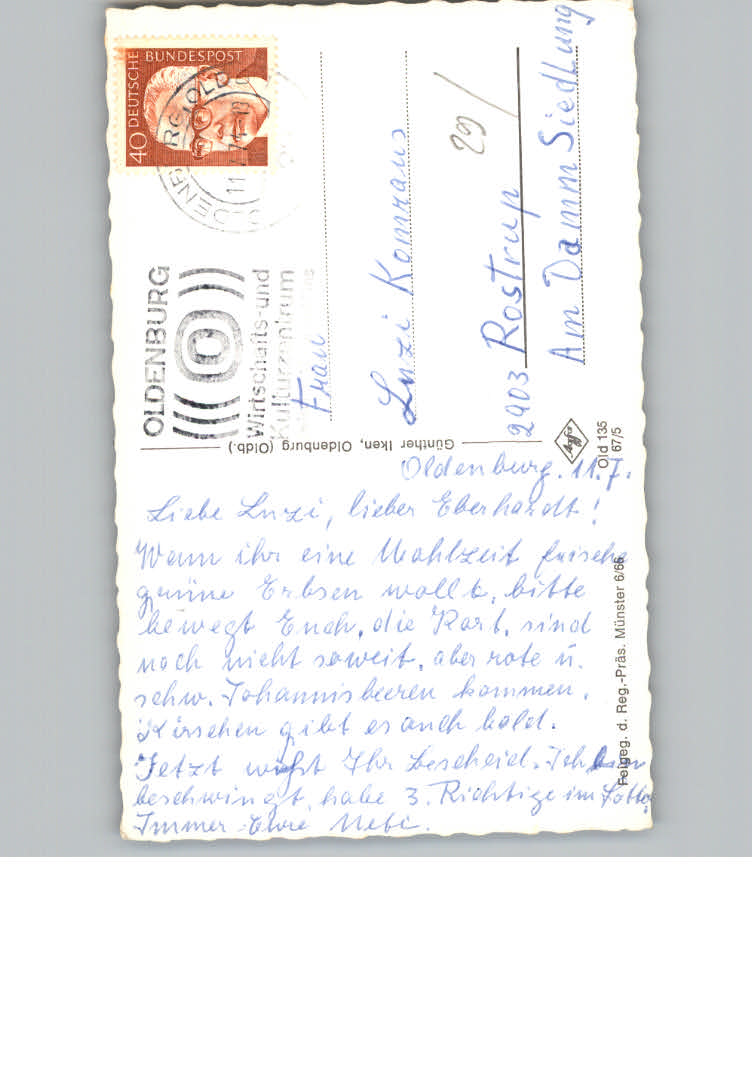 40 DEUTSCHE BUNDESPOST
OLDENBURG
Wirtschafts-und
Kulturzentrum
Frau
Luzi Komraus
29/
2903 Rostrup
Am Damm Siedlung
Günther Iken, Oldenburg (Oldb.)
Agfa
Old 135
67/5
Freigeg. d. Reg.-Präs. Münster 6/66
Oldenburg. 11.7.
Liebe Luzi, lieber Eberhardt!
Wenn ihr eine Mahlzeit frische
grüne Erbsen wollt, bitte
bewegt Euch, die Kart. sind
noch nicht soweit, aber rote u.
schw. Johannisbeeren kommen.
Kirschen gibt es auch bald.
Jetzt wißt Ihr Bescheid. Ich bin
beschwingt, habe 3. Richtige im Lotto.
Immer Eure